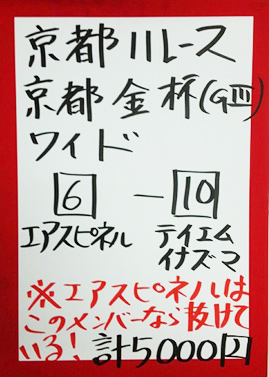 京都11レース
京都金杯(GⅢ)
ワイド
6 － 10
エアスピネル テイエムイナズマ
※エアスピネルは
このメンバーなら抜けて
いる! 計5000円